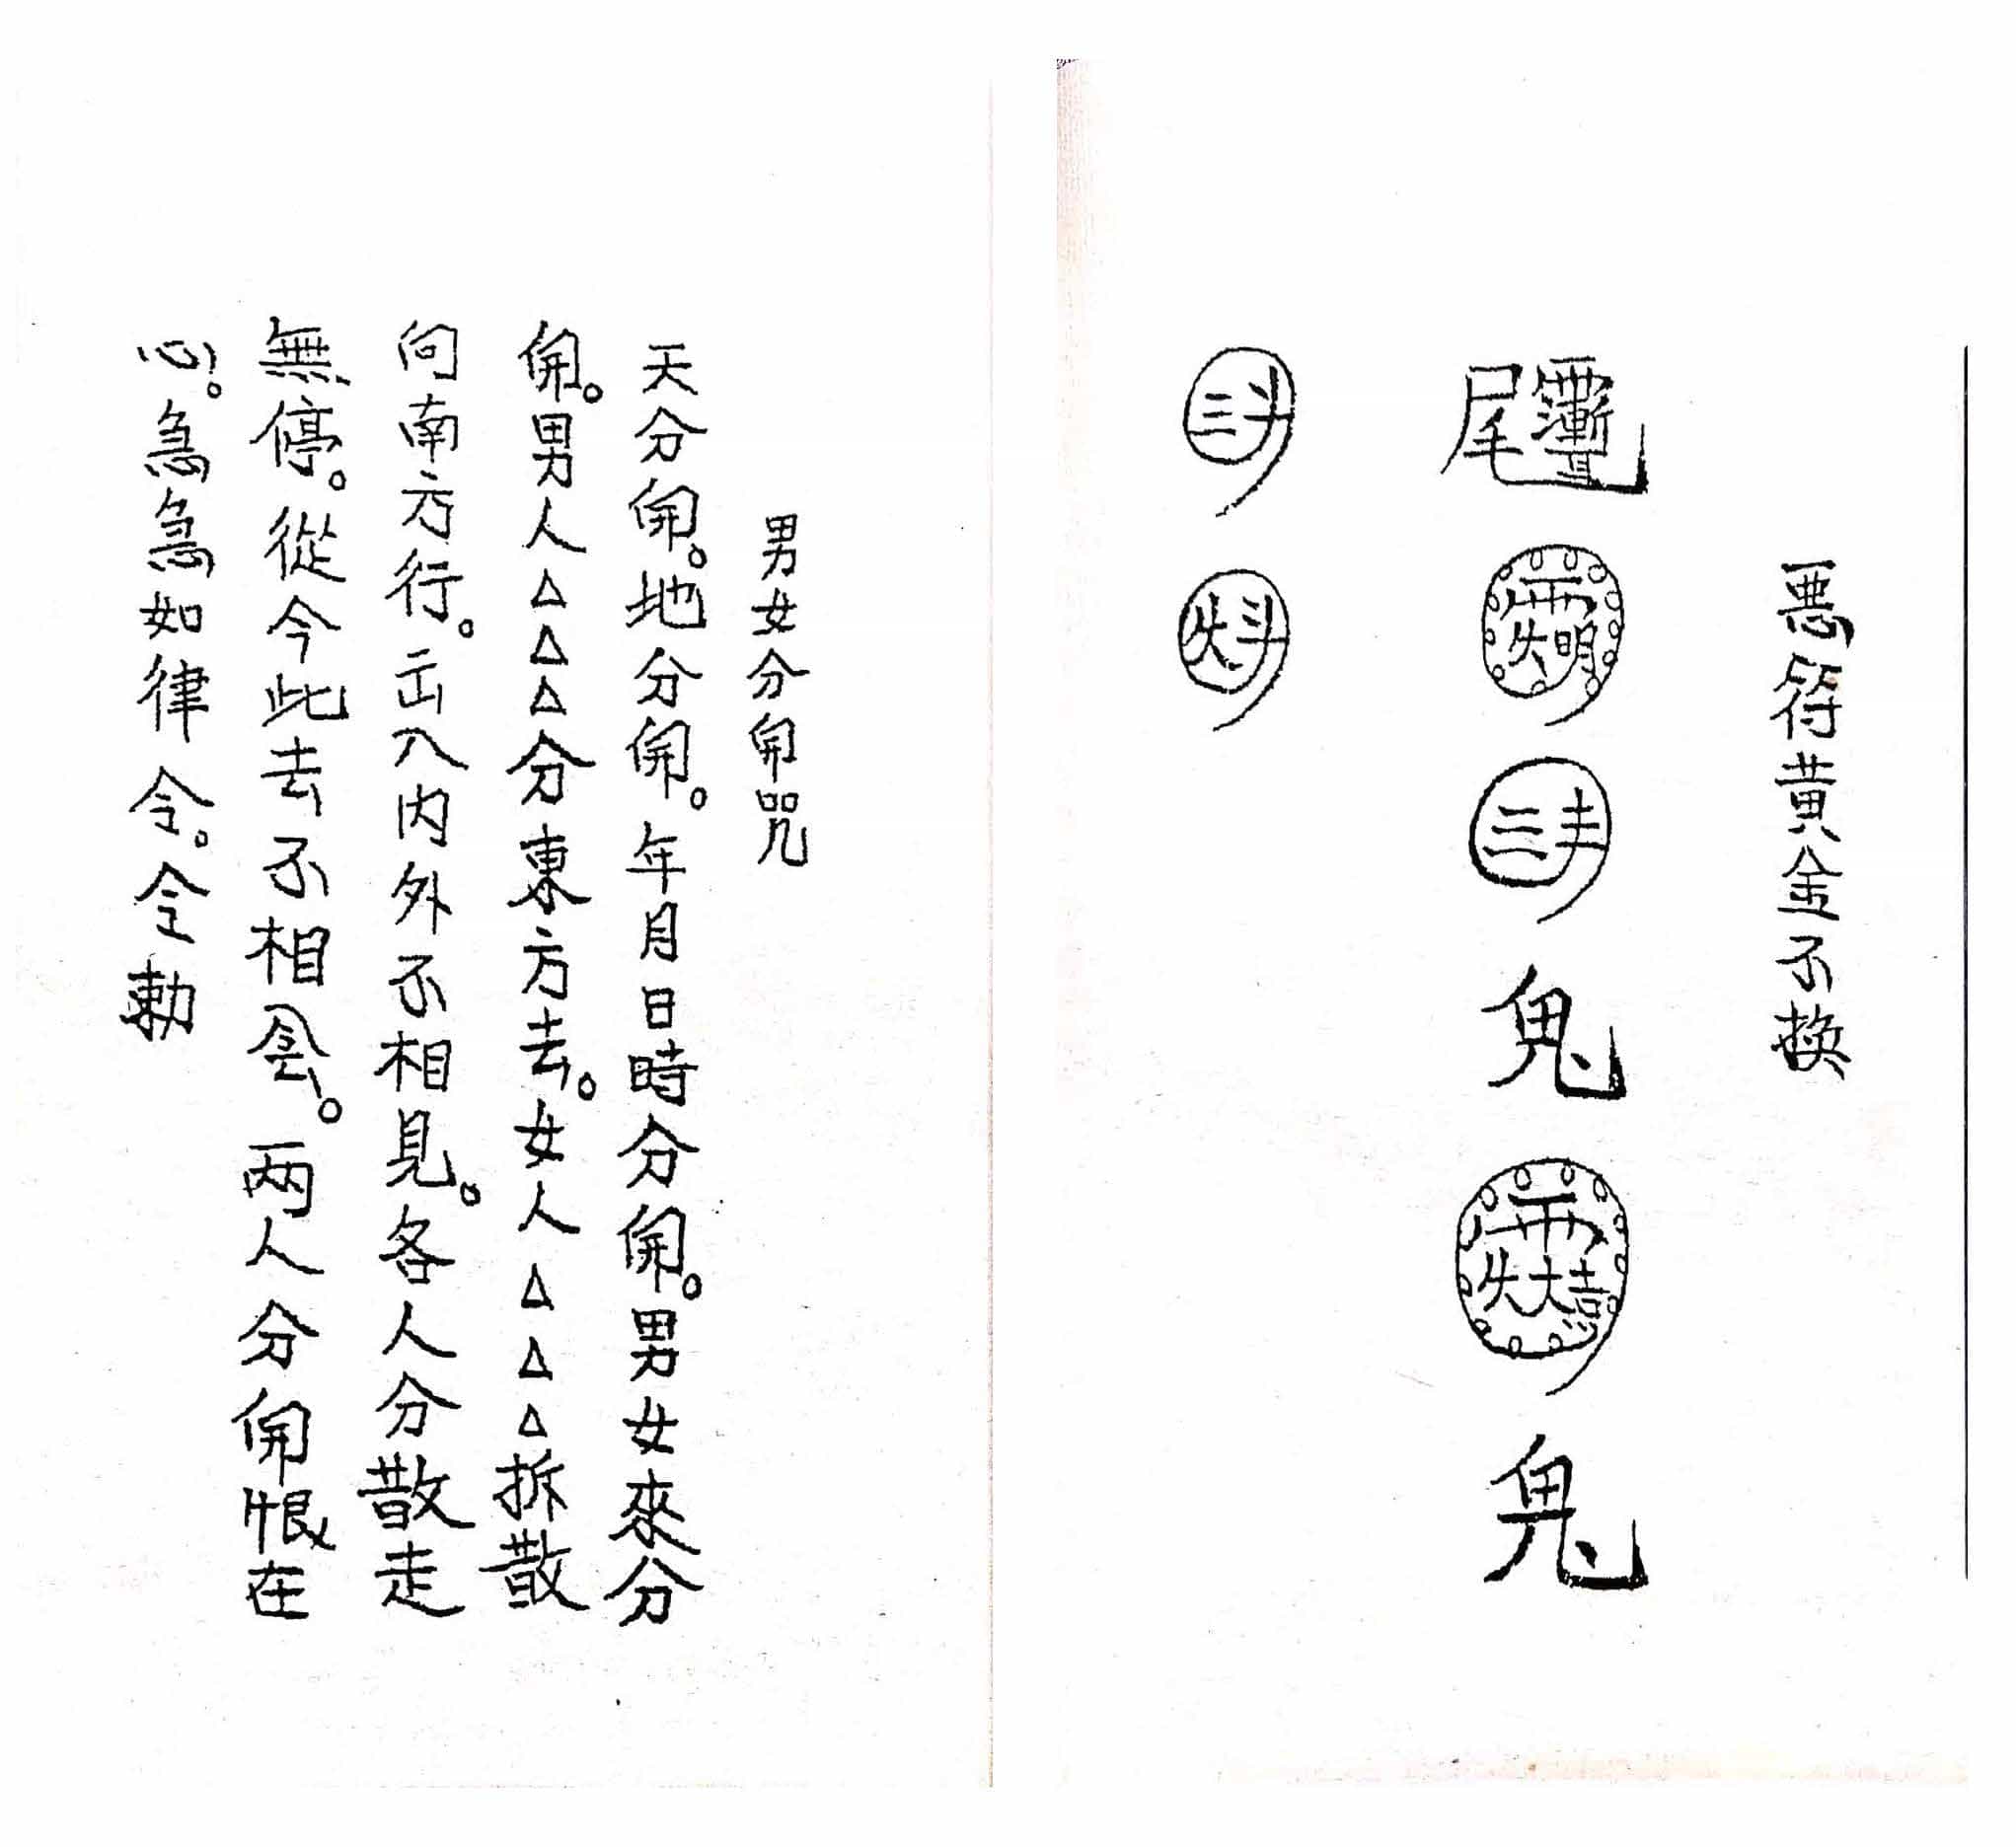 惡符黄金不換
鬼
鬼
男女分開咒
天分開。地分開。年月日時分開。男女來分
開。男人△△△分東方去。女人△△△拆散
向南方行。出入內外不相見。各人分散走
無停。從今此去不相會。两人分開恨在
心。急急如律令。令勅